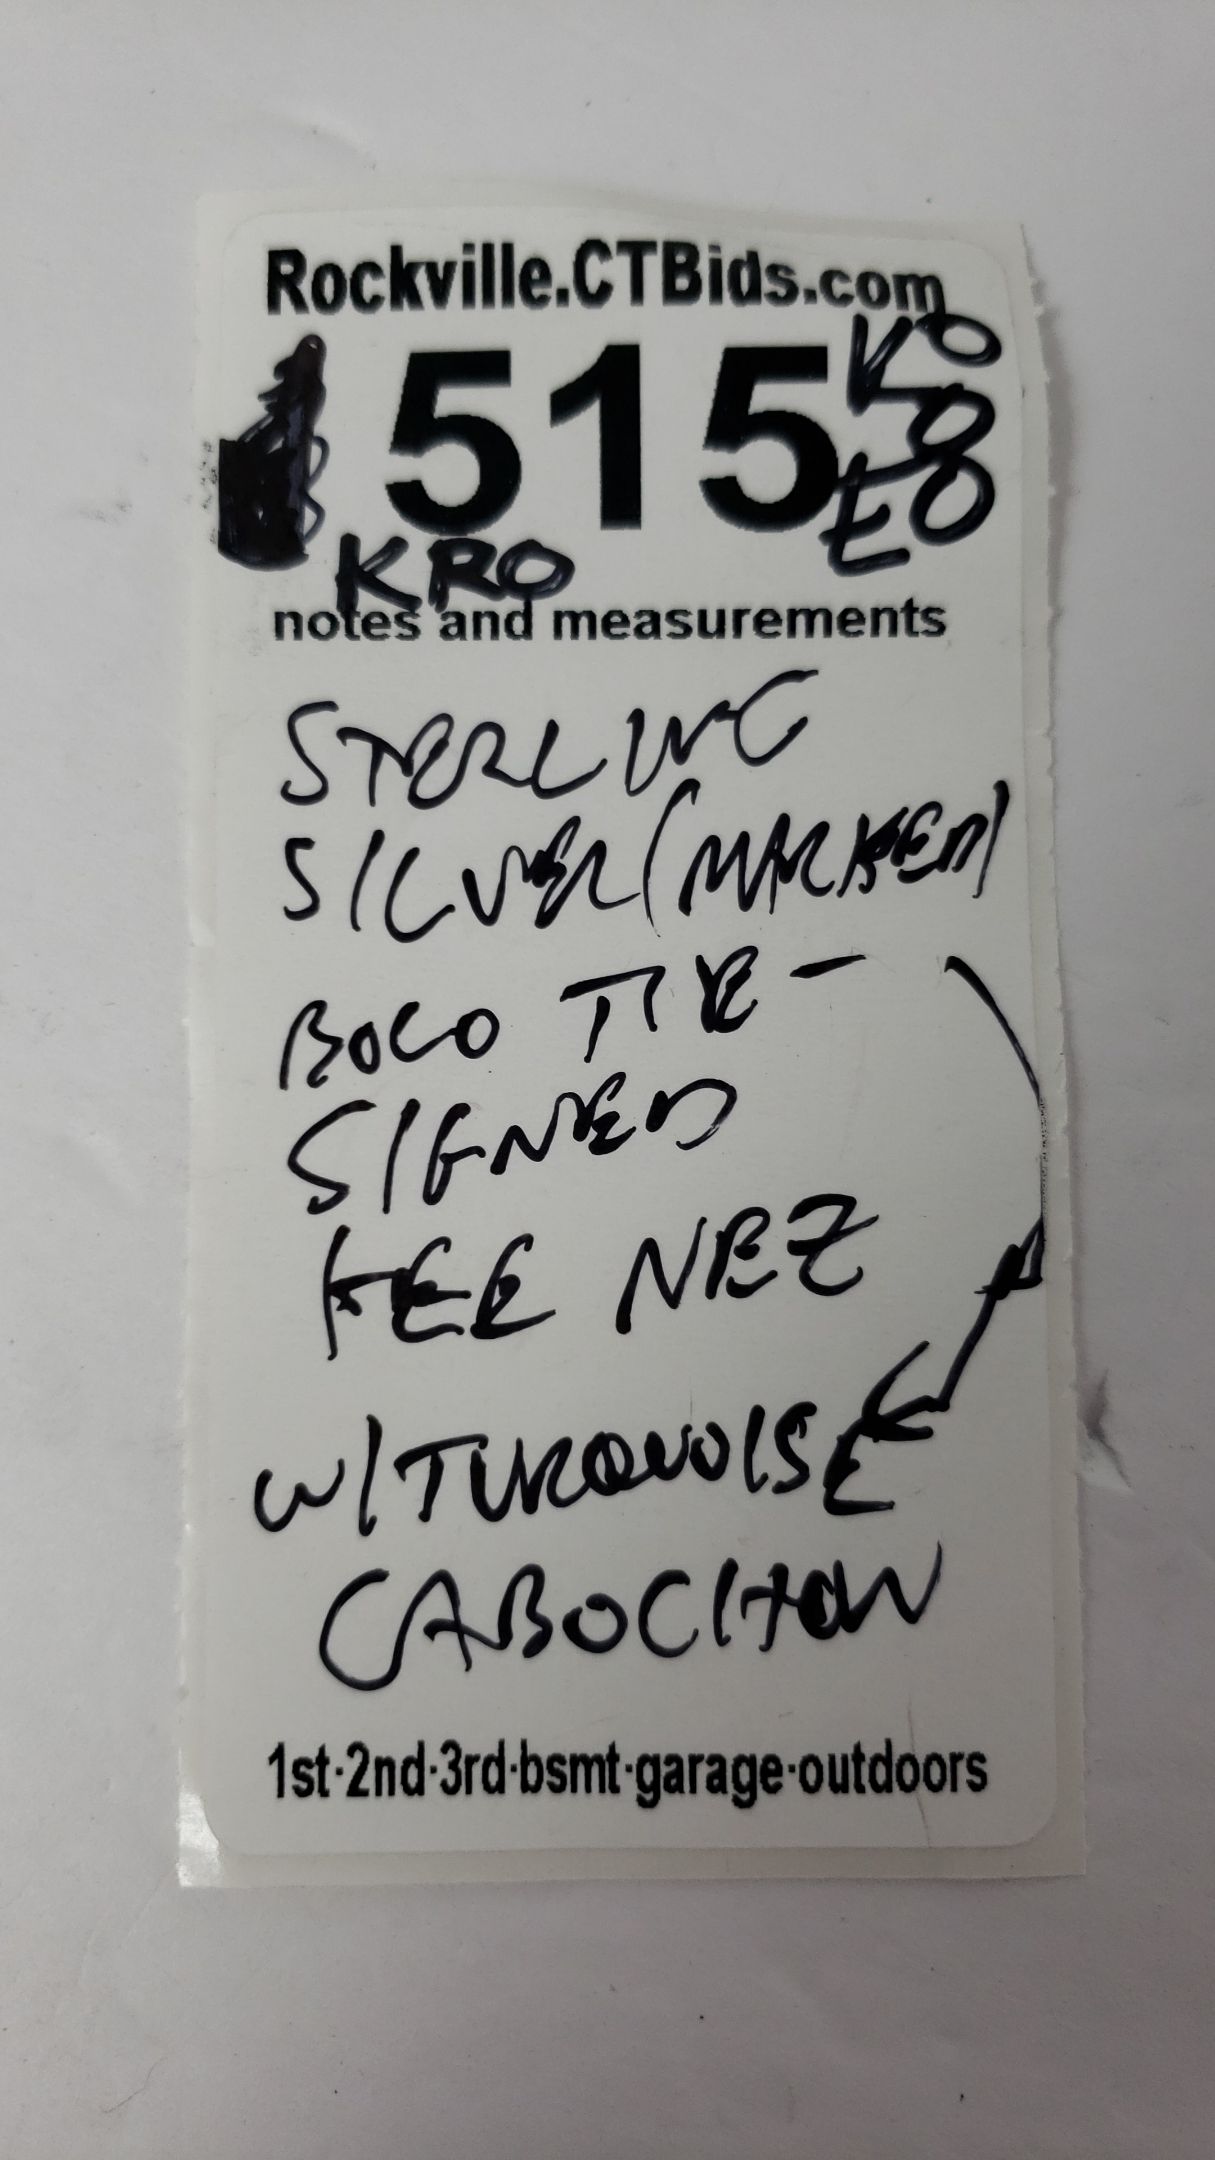 Rockville.CTBids.com
515
KRO
notes and measurements
STERLING
SILVER (MARKED)
BOLO TIE -
SIGNED
KEE NEZ
W/TURQUOISE
CABOCHON
1st·2nd·3rd·bsmt·garage·outdoors